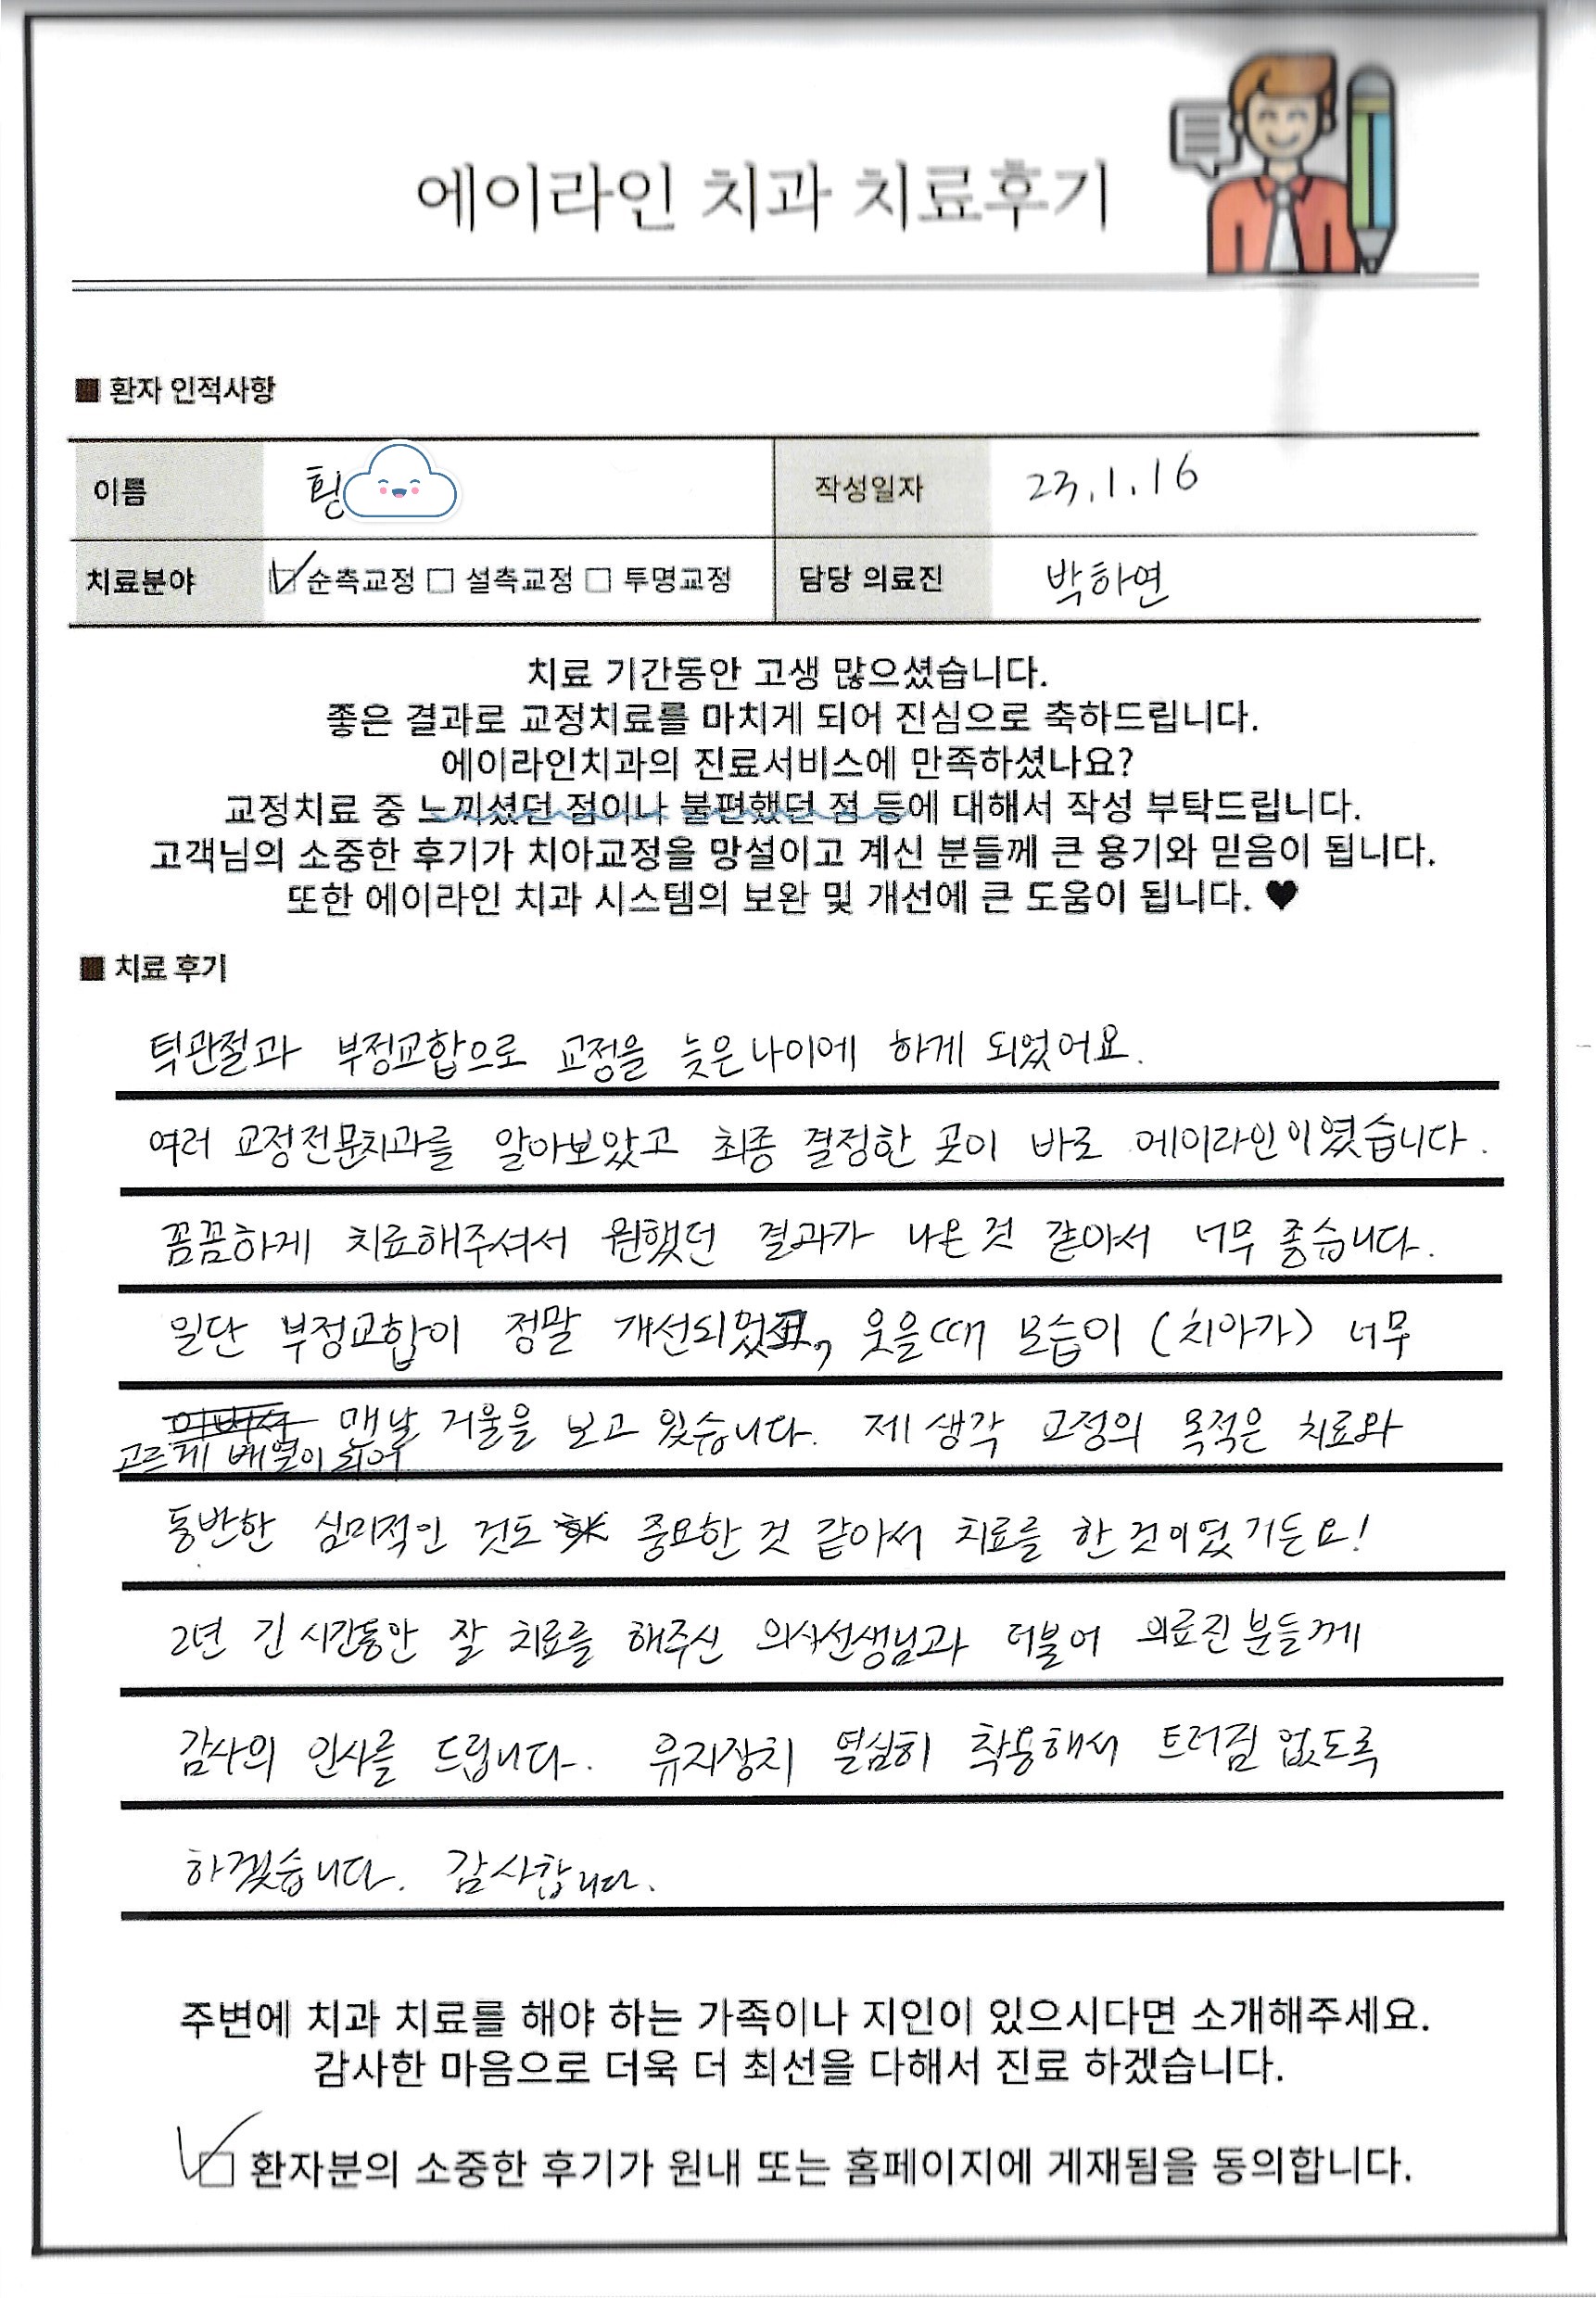 에이라인 치과 치료후기
■ 환자 인적사항
이름 작성일자 23.1.16
치료분야 ☑ 순측교정 □ 설측교정 □ 투명교정 담당 의료진 박하연
치료 기간동안 고생 많으셨습니다.
좋은 결과로 교정치료를 마치게 되어 진심으로 축하드립니다.
에이라인치과의 진료서비스에 만족하셨나요?
교정치료 중 느끼셨던 점이나 불편했던 점 등에 대해서 작성 부탁드립니다.
고객님의 소중한 후기가 치아교정을 망설이고 계신 분들께 큰 용기와 믿음이 됩니다.
또한 에이라인 치과 시스템의 보완 및 개선에 큰 도움이 됩니다. ♥
■ 치료 후기
턱관절과 부정교합으로 교정을 늦은나이에 하게 되었어요.
여러 교정전문치과를 알아보았고 최종 결정한 곳이 바로 에이라인이였습니다.
꼼꼼하게 치료해주셔서 원했던 결과가 나온것 같아서 너무 좋습니다.
일단 부정교합이 정말 개선되었고, 웃을때 모습이 (치아가) 너무
고르게 배열이 되어 맨날 거울을 보고 있습니다. 제 생각 교정의 목적은 치료와
동반한 심미적인 것도 중요한 것 같아서 치료를 한것이였거든요!
2년 긴 시간동안 잘 치료를 해주신 의사선생님과 더불어 의료진분들께
감사의 인사를 드립니다. 유지장치 열심히 착용해서 트러짐 없도록
하겠습니다. 감사합니다.
주변에 치과 치료를 해야 하는 가족이나 지인이 있으시다면 소개해주세요.
감사한 마음으로 더욱 더 최선을 다해서 진료 하겠습니다.
☑ 환자분의 소중한 후기가 원내 또는 홈페이지에 게재됨을 동의합니다.